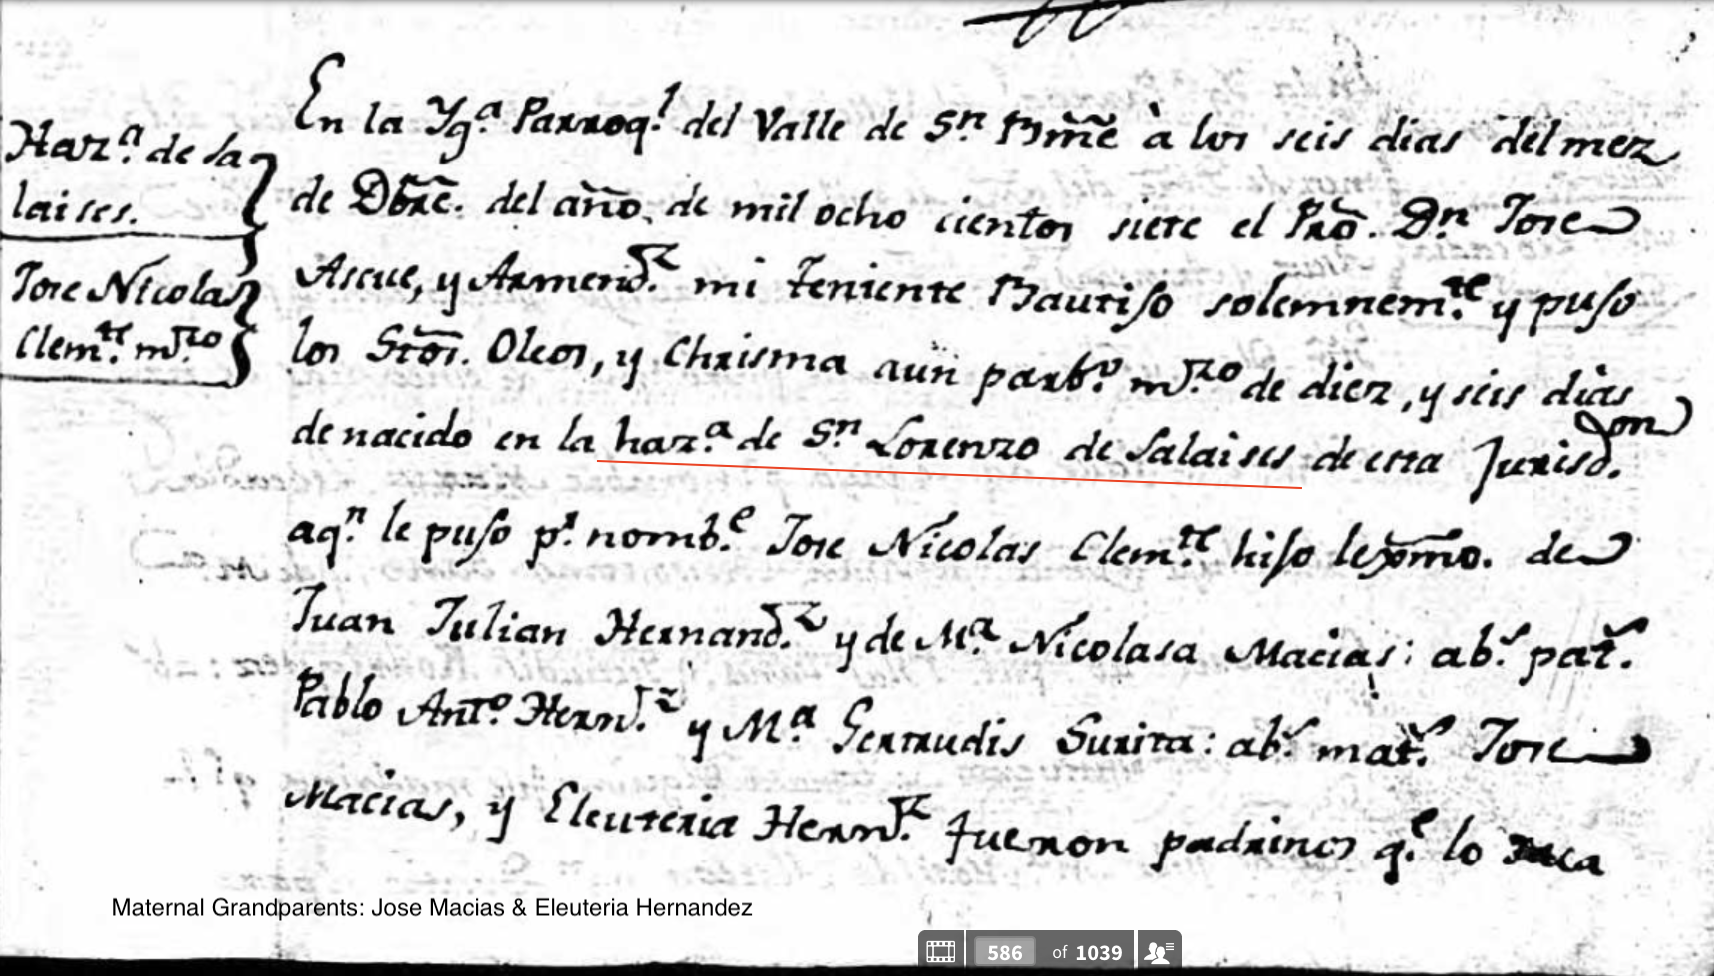 Haz.ª de Sa
laises.
Jose Nicolas
Clem.te mzo
En la Yg.ª Parroq.l del Valle de Sn Bmẽ à los seis dias del mez
de Dbrẽ. del año de mil ocho cientos siete el Prõ. Dn Jose
Ascue, y Armend.z mi teniente Bautiso solemnem.te y puso
los Stõs. Oleos, y Chrisma aun parb.o mzo de diez, y seis dias
de nacido en la haz.ª de Sn Lorenzo de Salaises de esta Jurisd.on
aq.n le puso p.r nomb.e Jose Nicolas Clem.te hiso lexmo. de
Juan Julian Hernand.z y de M.ª Nicolasa Macias: ab.s pat.s
Pablo Ant.o Hern.z y M.ª Gertrudis Surita: ab.s mat.s Jose
Macias, y Eleuteria Hern.z fueron padrinos q.e lo
Maternal Grandparents: Jose Macias & Eleuteria Hernandez
586 of 1039